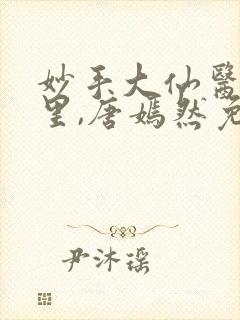 妙手大仙醫
里,唐嫣然免
尹沐瑶